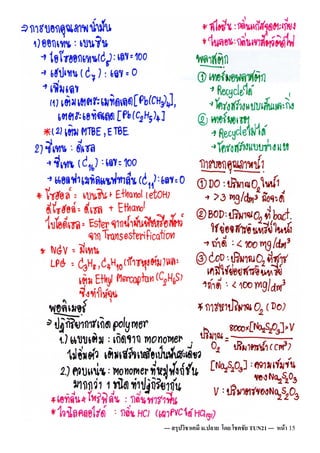 ⇒ การบอกคุณภาพน้ำมัน
1) ออกเทน : เบนซิน
→ ไอโซออกเทน (C₈) : เลข = 100
→ เฮปเทน (C₇) : เลข = 0
→ เพิ่มเลข
(1) เติมเตตระเมทิลเลด [Pb(CH₃)₄],
เตตระเอทิลเลด [Pb(C₂H₅)₄]
*(2) เติม MTBE, ETBE
2) ซีเทน : ดีเซล
→ ซีเทน (C₁₆) : เลข = 100
→ แอลฟาเมทิลแนฟทาลีน (C₁₁) : เลข = 0
* แก๊สโซฮอล์ = เบนซิน + Ethanol (etOH)
ดีโซฮอล์ = ดีเซล + Ethanol
ไบโอดีเซล = Ester จากน้ำมันพืชหรือสัตว์
จาก Transesterification
* NGV = มีเทน
LPG = C₃H₈, C₄H₁₀ (ก๊าซหุงต้ม) และ
เติม Ethyl Mercaptan (C₂H₅S)
ซึ่งทำให้ฉุน
พอลิเมอร์
⇒ ปฏิกิริยาการเกิด polymer
1.) แบบเติม : เกิดจาก monomer
ไม่อิ่มตัว เติมเสร็จเหลือเป็นพันธะเดี่ยว
2.) ควบแน่น : Monomer ที่หมู่ฟังก์ชัน
มากกว่า 1 ชนิด ทำปฏิกิริยากัน
* เอทิลีน + โพรพิลีน : กลิ่นพาราฟิน
* ไวนิลคลอไรด์ : กลิ่น HCl
* ไนลอน : กลิ่นเขาสัตว์ติดไฟ
พลาสติก
① เทอร์มอพลาสติก
→ Recycle ได้
→ โครงสร้างแบบเส้นและกิ่ง
② เทอร์มอเซต
→ Recycle ไม่ได้
→ โครงสร้างแบบร่างแห
การบอกคุณภาพน้ำ
① DO : ปริมาณ O₂ ในน้ำ
→ > 3 mg/dm³ น้ำจะดี
② BOD : ปริมาณ O₂ ที่ bact.
ใช้ย่อยสารอินทรีย์ในน้ำ
→ น้ำดี : < 100 mg/dm³
③ COD : ปริมาณ O₂ ที่สาร
เคมีใช้ย่อยสารอินทรีย์
→ น้ำดี : < 100 mg/dm³
* การหาปริมาณ O₂ (DO)
ปริมาณ O₂ = 8000 × [Na₂S₂O₃] × V
ปริมาตรน้ำ (cm³)
[Na₂S₂O₃] : ความเข้มข้น
ของ Na₂S₂O₃
V : ปริมาตรของ Na₂S₂O₃
— สรุปวิชาเคมี ม.ปลาย โดย โชคชัย TUN21 — หน้า 15